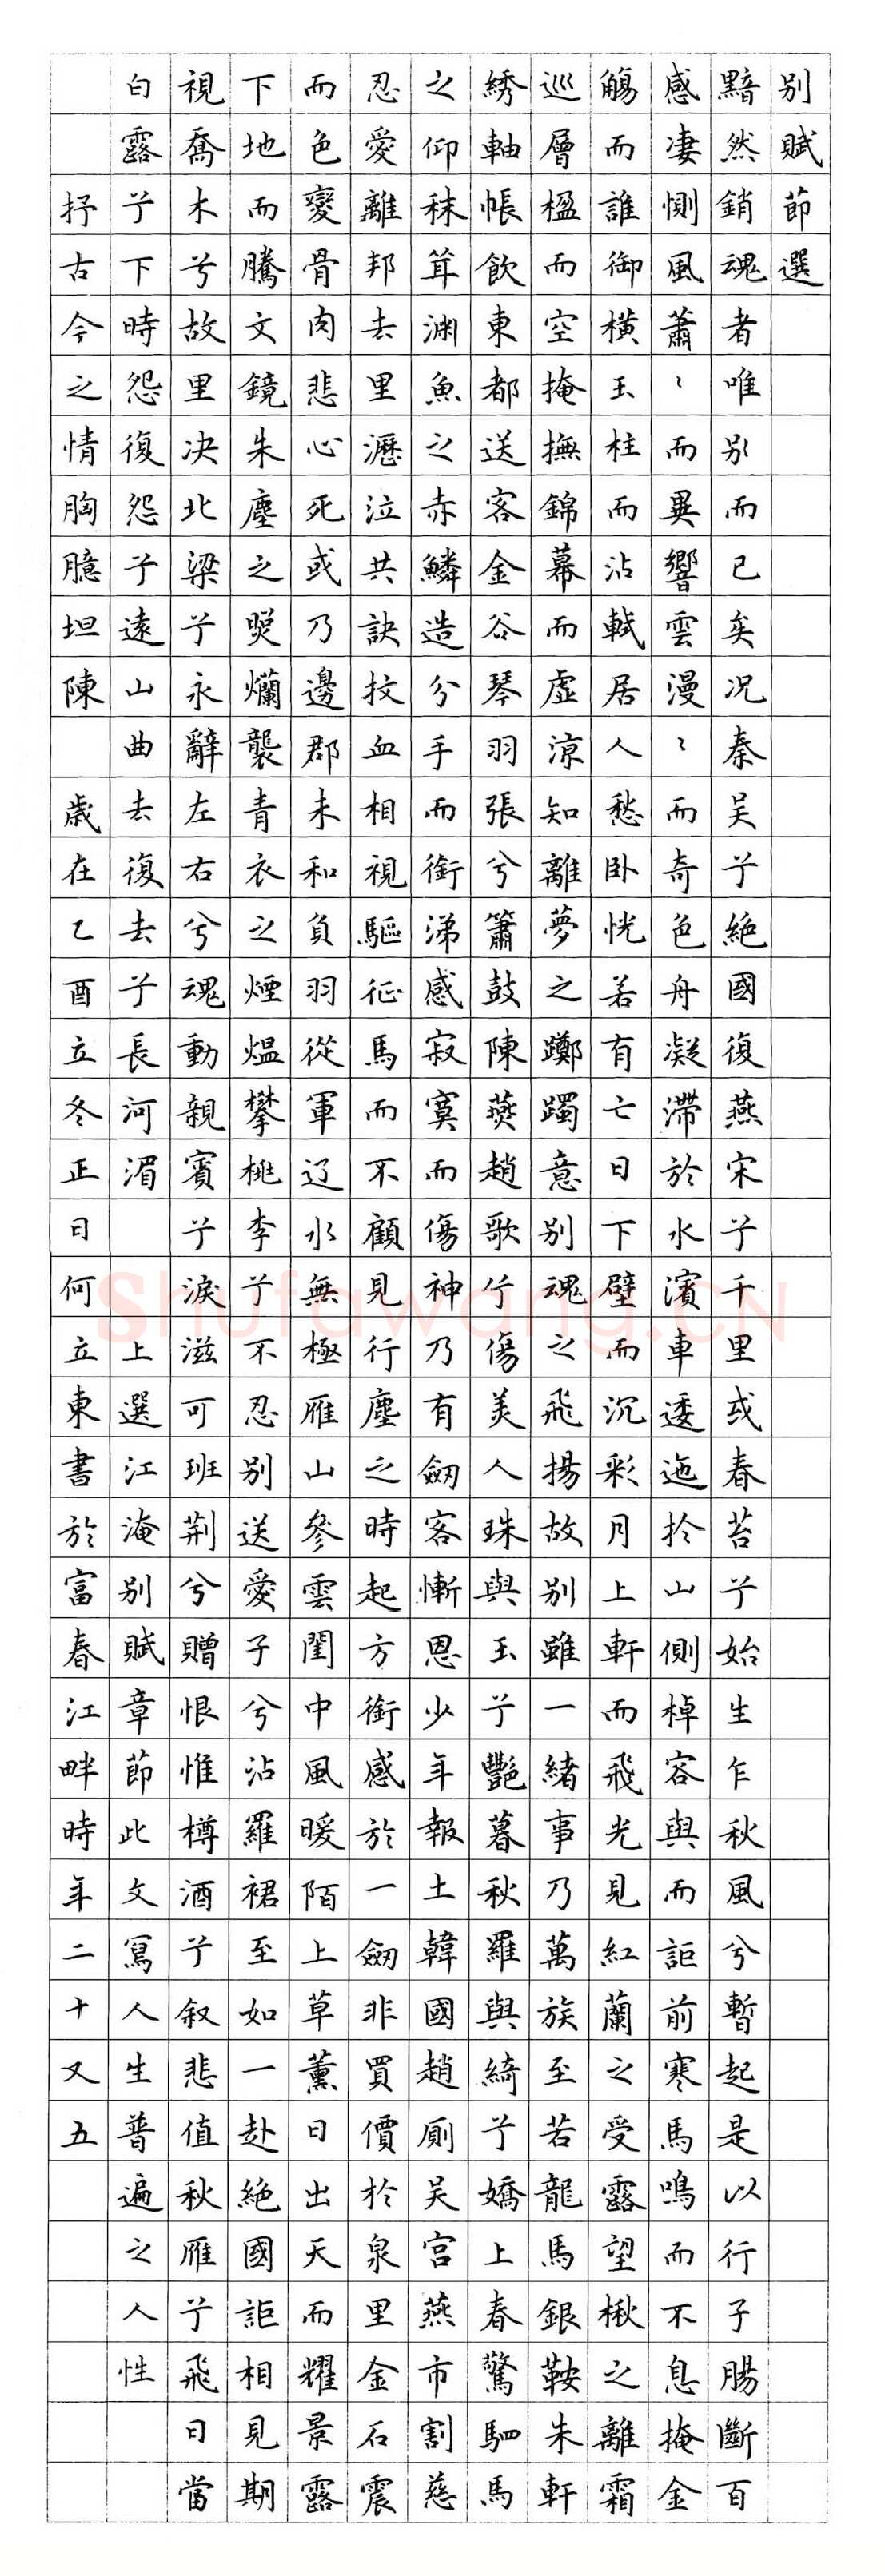 别賦節選
黯然銷魂者唯别而已矣况秦吴兮絶國復燕宋兮千里或春苔兮始生乍秋風兮暫起是以行子腸斷百
感凄惻風蕭〻而異響雲漫〻而奇色舟凝滯於水濱車逶迤於山側棹容與而詎前寒馬鳴而不息掩金
觴而誰御横玉柱而沾軾居人愁卧恍若有亡日下壁而沉彩月上軒而飛光見紅蘭之受露望楸之離霜
巡層楹而空掩撫錦幕而虚凉知離夢之躑躅意别魂之飛揚故别雖一緒事乃萬族至若龍馬銀鞍朱軒
綉軸帳飲東都送客金谷琴羽張兮簫鼓陳燕趙歌兮傷美人珠與玉兮艷暮秋羅與綺兮嬌上春驚駟馬
之仰秣聳渊魚之赤鱗造分手而銜涕感寂寞而傷神乃有劒客慚恩少年報士韓國趙厠吴宫燕市割慈
忍愛離邦去里瀝泣共訣抆血相視驅征馬而不顧見行塵之時起方銜感於一劒非買價於泉里金石震
而色變骨肉悲心死或乃邊郡未和負羽從軍辽水無極雁山參雲閨中風暖陌上草薰日出天而耀景露
下地而騰文鏡朱塵之照爛襲青衣之煙煴攀桃李兮不忍别送愛子兮沾羅裙至如一赴絶國詎相見期
視喬木兮故里决北梁兮永辭左右兮魂動親賓兮淚滋可班荆兮贈恨惟樽酒兮叙悲值秋雁兮飛日當
白露兮下時怨復怨兮遠山曲去復去兮長河湄 上選江淹别賦章節此文寫人生普遍之人性
抒古今之情胸臆坦陳 歲在乙酉立冬正日何立東書於富春江畔時年二十又五
Shufawang.CN